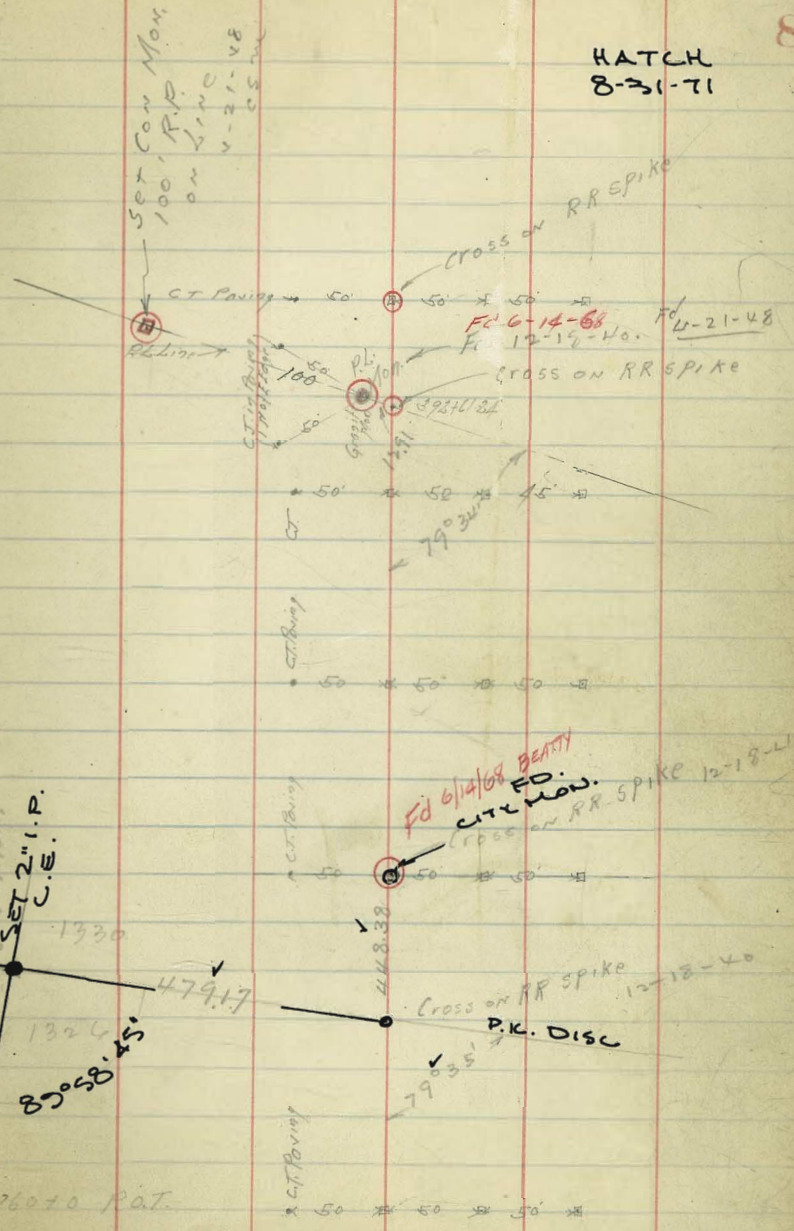 8
HATCH
8-31-71
Set Con Mon.
100' R.P.
on Line
4-21-48
Cross on RR Spike
C.T. Paving 50' 50' 50'
Fd 6-14-68
Fd 4-21-48
Fd 12-18-40.
100
50'
P.L.
Mon.
Cross on RR Spike
50'
12.91
50' 50 45'
C.T.
79° 34'
C.T. Paving
50 50' 50
Fd 6/14/68 BEATTY
FD.
CITY MON.
Cross on RR Spike 12-18-4
C.T. Paving
50 50' 50'
SET 2" I.P.
C.E.
1330
448.38
479.17
Cross on RR Spike 12-18-40
P.K. DISC
1326
89°58'45"
79° 35'
C.T. Paving
60+0 P.O.T.
50 50 50'